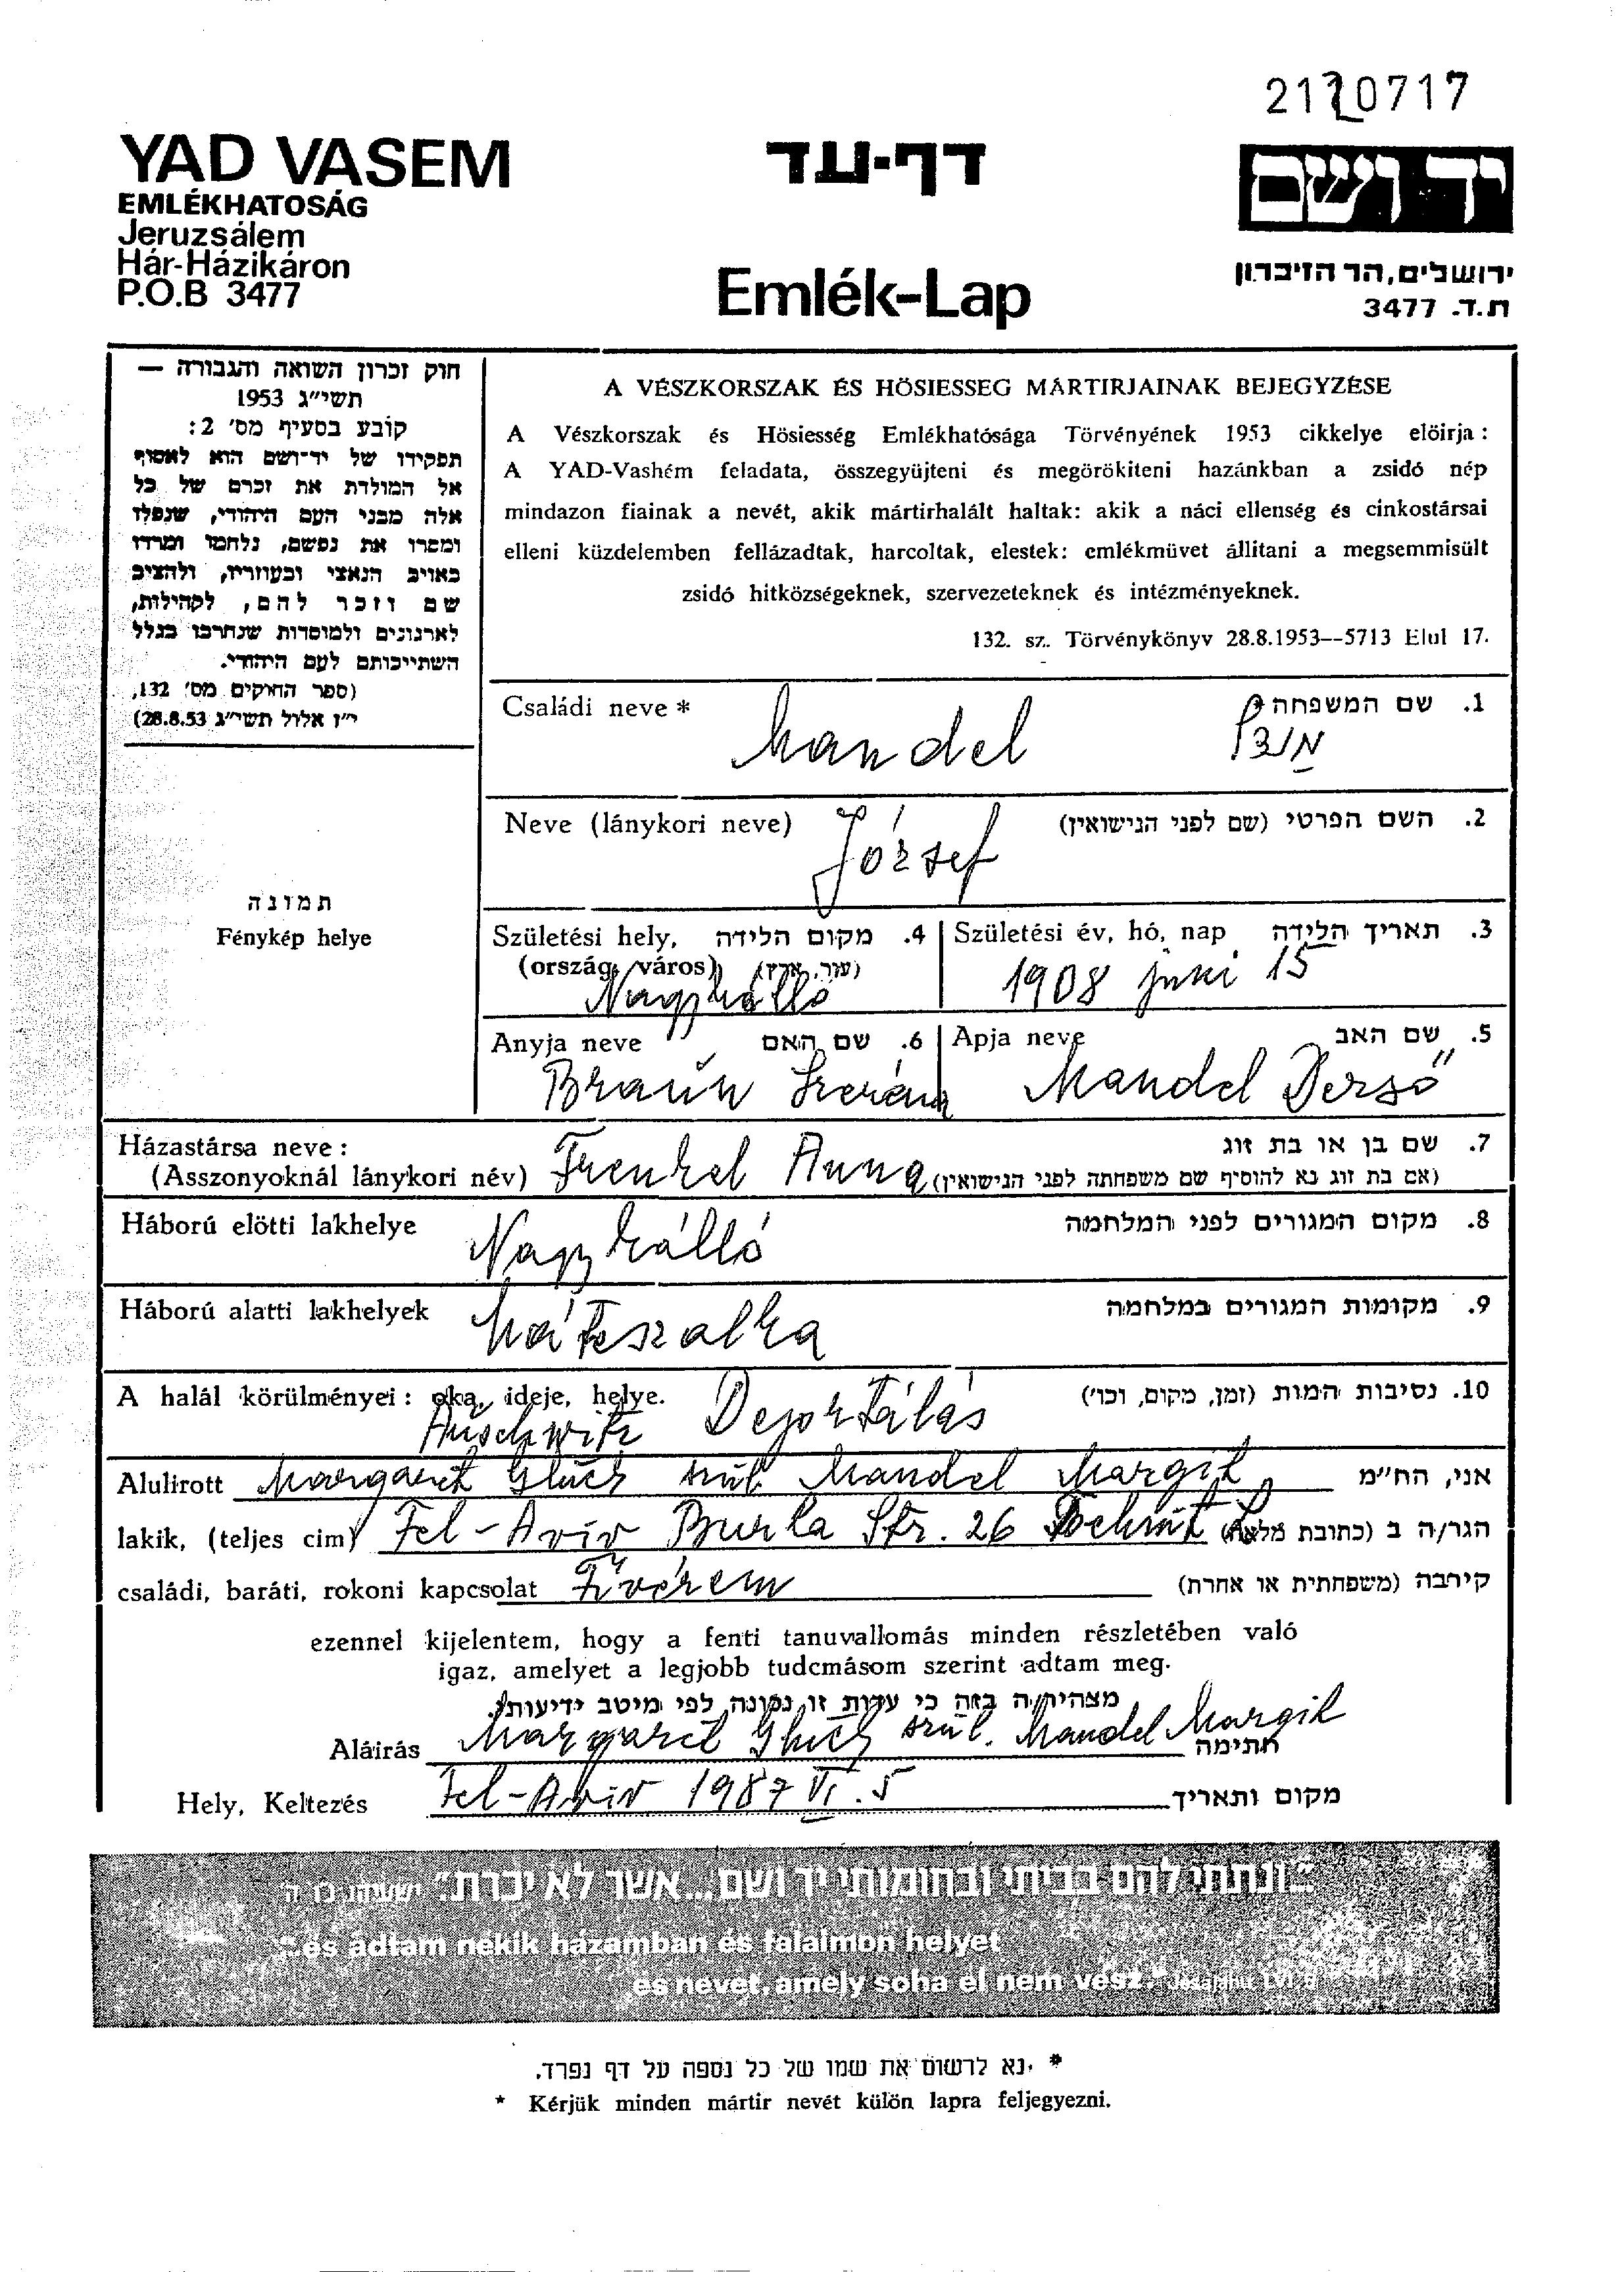 2170717
YAD VASEM
EMLÉKHATOSÁG
Jeruzsálem
Hár-Házikáron
P.O.B 3477
דף-עד
Emlék-Lap
יד ושם
ירושלים, הר הזיכרון
ת.ד. 3477
חוק זכרון השואה והגבורה —
תשי"ג 1953
קובע בסעיף מס' 2:
תפקידו של יד-ושם הוא לאסוף
אל המולדת את זכרם של כל
אלה מבני העם היהודי, שנפלו
ומסרו את נפשם, נלחמו ומרדו
באויב הנאצי ובעוזריו, ולהציב
שם וזכר להם, לקהילות,
לארגונים ולמוסדות שנחרבו בגלל
השתייכותם לעם היהודי.
(ספר החוקים מס' 132,
י"ז אלול תשי"ג 28.8.53)
A VÉSZKORSZAK ÉS HÖSIESSEG MÁRTIRJAINAK BEJEGYZÉSE
A Vészkorszak és Hösiesség Emlékhatósága Törvényének 1953 cikkelye elöirja:
A YAD-Vashém feladata, összegyüjteni és megörökiteni hazánkban a zsidó nép
mindazon fiainak a nevét, akik mártirhalált haltak: akik a náci ellenség és cinkostársai
elleni küzdelemben fellázadtak, harcoltak, elestek: emlékmüvet állitani a megsemmisült
zsidó hitközségeknek, szervezeteknek és intézményeknek.
132. sz. Törvénykönyv 28.8.1953--5713 Elul 17.
Családi neve * Mandel 1. שם המשפחה *
מנדל
Neve (lánykori neve) József 2. השם הפרטי (שם לפני הנישואין)
תמונה
Fénykép helye
Születési hely, 4. מקום הלידה
(ország, város) (עיר, ארץ)
Nagykálló
Születési év, hó, nap 3. תאריך הלידה
1908 juni 15
Anyja neve 6. שם האם
Braun Szeréna
Apja neve 5. שם האב
Mandel Dersö
Házastársa neve: 7. שם בן או בת זוג
(Asszonyoknál lánykori név) Frenkel Anna (אם בת זוג נא להוסיף שם משפחתה לפני הנישואין)
Háború elötti lakhelye Nagykálló 8. מקום המגורים לפני המלחמה
Háború alatti lakhelyek Mátészalka 9. מקומות המגורים במלחמה
A halál körülményei: oka, ideje, helye. Deportálás 10. נסיבות המות (זמן, מקום, וכו')
Auschwitz
Alulirott Margaret Glück szül. Mandel Margit אני, הח"מ
lakik, (teljes cim) Tel-Aviv Burla Str. 26 הגר/ה ב (כתובת מלאה)
családi, baráti, rokoni kapcsolat Fivérem קירבה (משפחתית או אחרת)
ezennel kijelentem, hogy a fenti tanuvallomás minden részletében való
igaz, amelyet a legjobb tudcmásom szerint adtam meg.
מצהיר/ה בזה כי עדות זו נכונה, לפי מיטב ידיעותי.
Aláirás Margaret Glück szül. Mandel Margit חתימה
Hely, Keltezés Tel-Aviv 1987 VI. 5 מקום ותאריך
"...ונתתי להם בביתי ובחומותי יד ושם... אשר לא יכרת." ישעיהו נו ה'
"...és adtam nékik házamban és falaimon helyet
és nevet, amely soha el nem vész."
* נא לרשום את שמו של כל נספה על דף נפרד.
* Kérjük minden mártir nevét külön lapra feljegyezni.